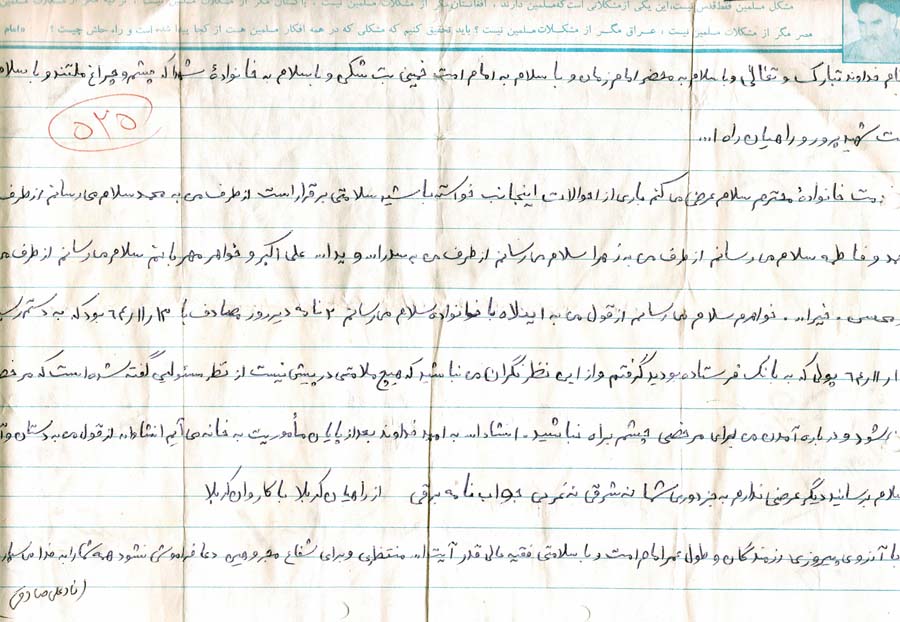 مشکل مسلمین فقط قدس نیست، این یکی از مشکلاتی است که مسلمین دارند، افغانستان مگر از مشکلات مسلمین نیست، پاکستان مگر از مشکلات مسلمین نیست
مصر مگر از مشکلات مسلمین نیست، عراق مگر از مشکلات مسلمین نیست؟ باید تحقیق کنیم که مشکلی که در همه اقطار مسلمین هست از کجا پیدا شده است و راه حلش چیست؟ «امام
نام خداوند تبارک و تعالی و با سلام به محضر امام زمان و با سلام به امام امت خمینی بت شکن و با سلام به خانوادهٔ شهدا که چشم و چراغ ملتند و با سلام
۵۲۵
شهید پرور و راهیان راه ا...
خانوادهٔ محترم سلام عرض می کنم باری از احوالات اینجانب خواسته باشید سلامتی برقرار است از طرف من به محمد سلام می رسانم از طرف
و فاطمه سلام می رسانم از طرف من به زهرا سلام می رسانم از طرف من به علی اکبر و خواهر مهربانم سلام می رسانم از طرف من
محسن . خیرا... خواهرم سلام می رسانم از قول من به با خانواده سلام می رسانم ۲ نامه دیروز مصادف با ۱۳ر۱۱ر۶۴ بود که به دستم رسید
ر۱۱ر۶۴ پولی که به بانک فرستاده بودید گرفتم و از این نظر نگران من نباشید که هیچ ملامتی در پیش نیست از نظر مسئولین گفته شده است که مرخصی
شود و درباره آمدن من برای مرخصی چشم براه نباشید. انشاءا... به امید خداوند بعد از پایان مأموریت به خانه می آیم انشاءا... از قول من به دستان و
سلام برسانید دیگر عرضی ندارم به جز دوری شما نه شرقی نه غربی جواب نامه برقی از راهیان کربلا با کاروان کربلا
با آرزوی پیروزی رزمندگان و طول عمر امام امت و با سلامتی فقیه عالی قدر آیت ا... منتظری و برای شفاع مجروحین دعا فراموش نشود همه شما را به خدا می سپارم
صادق